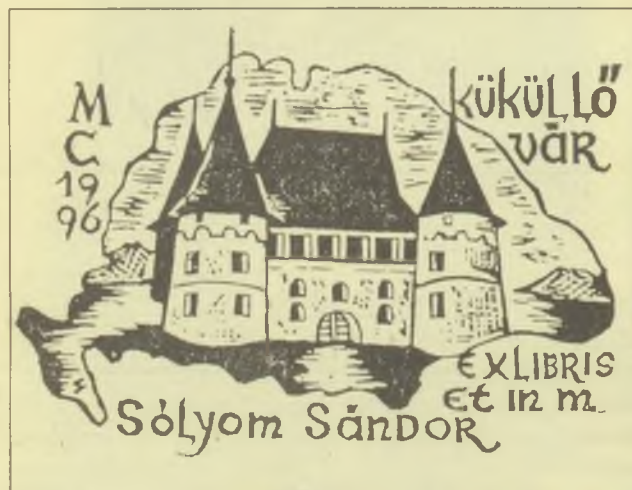 M
C
19
96
KÜKÜLLŐ
VÁR
EXLIBRIS
Et in m.
Sólyom Sándor